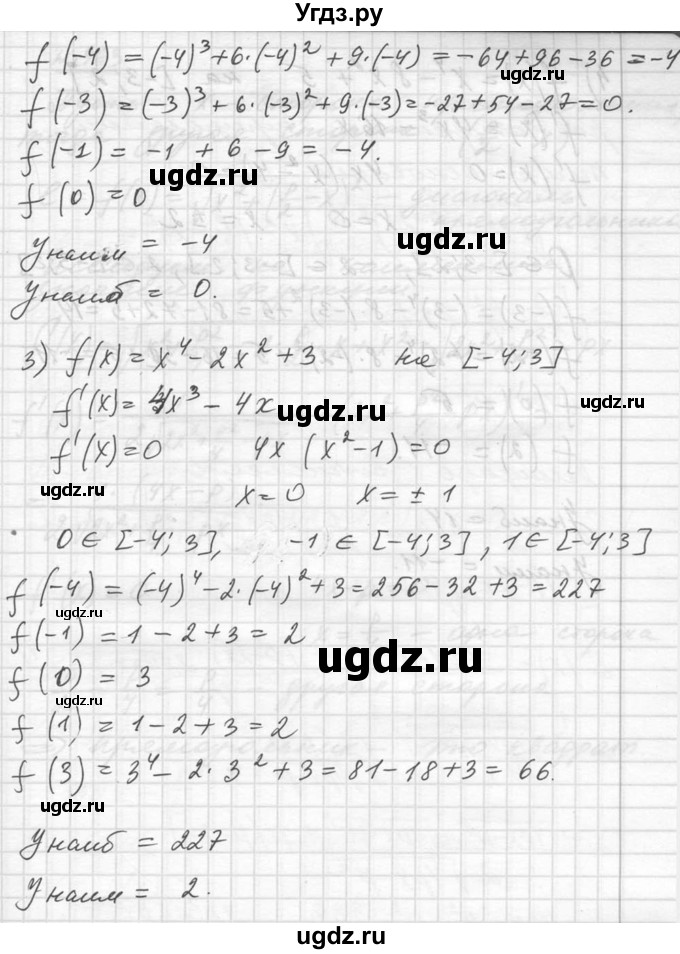 Угдз.ру
f(-4) = (-4)³+6·(-4)²+9·(-4) = -64+96-36 = -4
f(-3) = (-3)³+6·(-3)²+9·(-3) = -27+54-27=0.
f(-1) = -1 + 6 - 9 = -4.
ugdz.ru
ugdz.ru
f(0) = 0
ugdz.ru
Yнаим = -4
Yнаиб = 0.
3) f(x) = x⁴-2x²+3 на [-4;3]
f'(x) = 4x³-4x
ugdz.ru
ugdz.ru
f'(x)=0 4x (x²-1)=0
ugdz.ru
x=0 x=±1
0∈[-4;3], -1∈[-4;3], 1∈[-4;3]
f(-4) = (-4)⁴-2·(-4)²+3=256-32+3=227
ugdz.ru
f(-1) = 1-2+3=2
ugdz.ru
f(0) = 3
f(1) = 1-2+3=2
f(3) = 3⁴-2·3²+3=81-18+3=66.
ugdz.ru
ugdz.ru
Yнаиб = 227
Yнаим = 2.
ugdz.ru
ugdz.ru